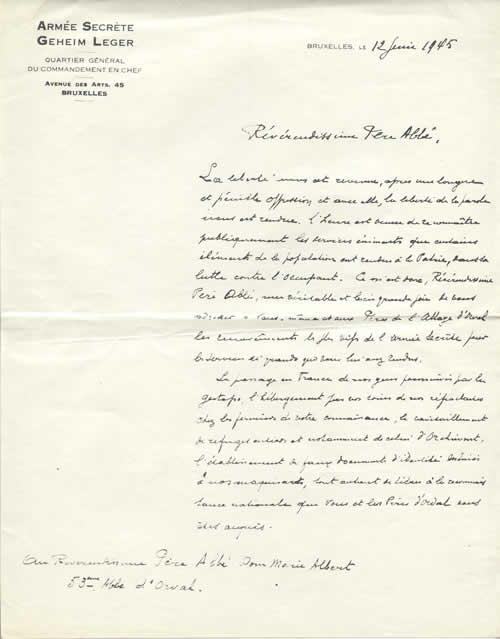 ARMÉE SECRÈTE
GEHEIM LEGER
QUARTIER GÉNÉRAL
DU COMMANDEMENT EN CHEF
AVENUE DES ARTS, 45
BRUXELLES
BRUXELLES, LE 12 Juin 1945
Révérendissime Père Abbé,
La liberté nous est revenue, après une longue
et pénible oppression, et avec elle, la liberté de la parole
nous est rendue. L'heure est venue de reconnaître
publiquement les services éminents que certains
éléments de la population ont rendus à la Patrie, dans la
lutte contre l'occupant. Ce m'est donc, Révérendissime
Père Abbé, une véritable et bien grande joie de vous
adresser à vous, et aux Pères de l'Abbaye d'Orval
les remerciements les plus vifs de l'armée secrète pour
les services si grands que vous lui avez rendus.
Le passage en France de nos gens poursuivis par la
gestapo, l'hébergement par vos soins de nos réfractaires
chez les fermiers de votre connaissance, le ravitaillement
de refuges entiers et notamment de celui d'Orchimont,
l'établissement de faux documents d'identité destinés
à nos maquisards, tout autant de titres à la reconnais
sance nationale que vous et les Pères d'Orval vous
êtes acquis.
Au Révérendissime Père Abbé Dom Marie Albert
53ème Abbé d'Orval.